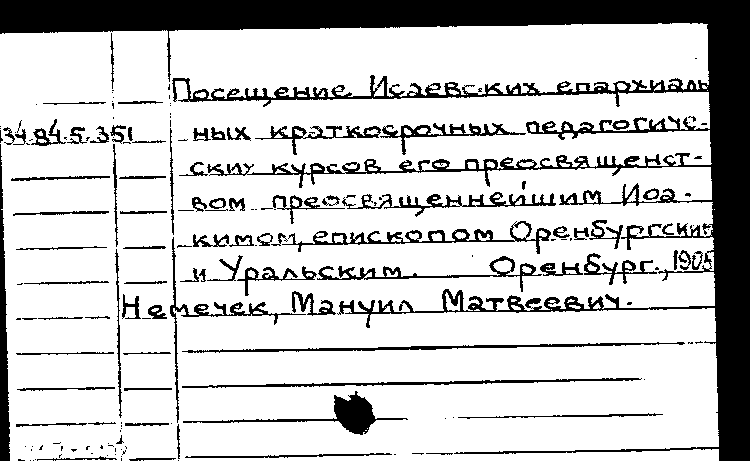 Посещение Исаевских епархиаль
34.84.5.351 ных краткосрочных педагогиче-
ских курсов его преосвященст-
вом преосвященнейшим Иоа-
кимом, епископом Оренбургским
и Уральским. Оренбург., 1905
Немечек, Мануил Матвеевич.